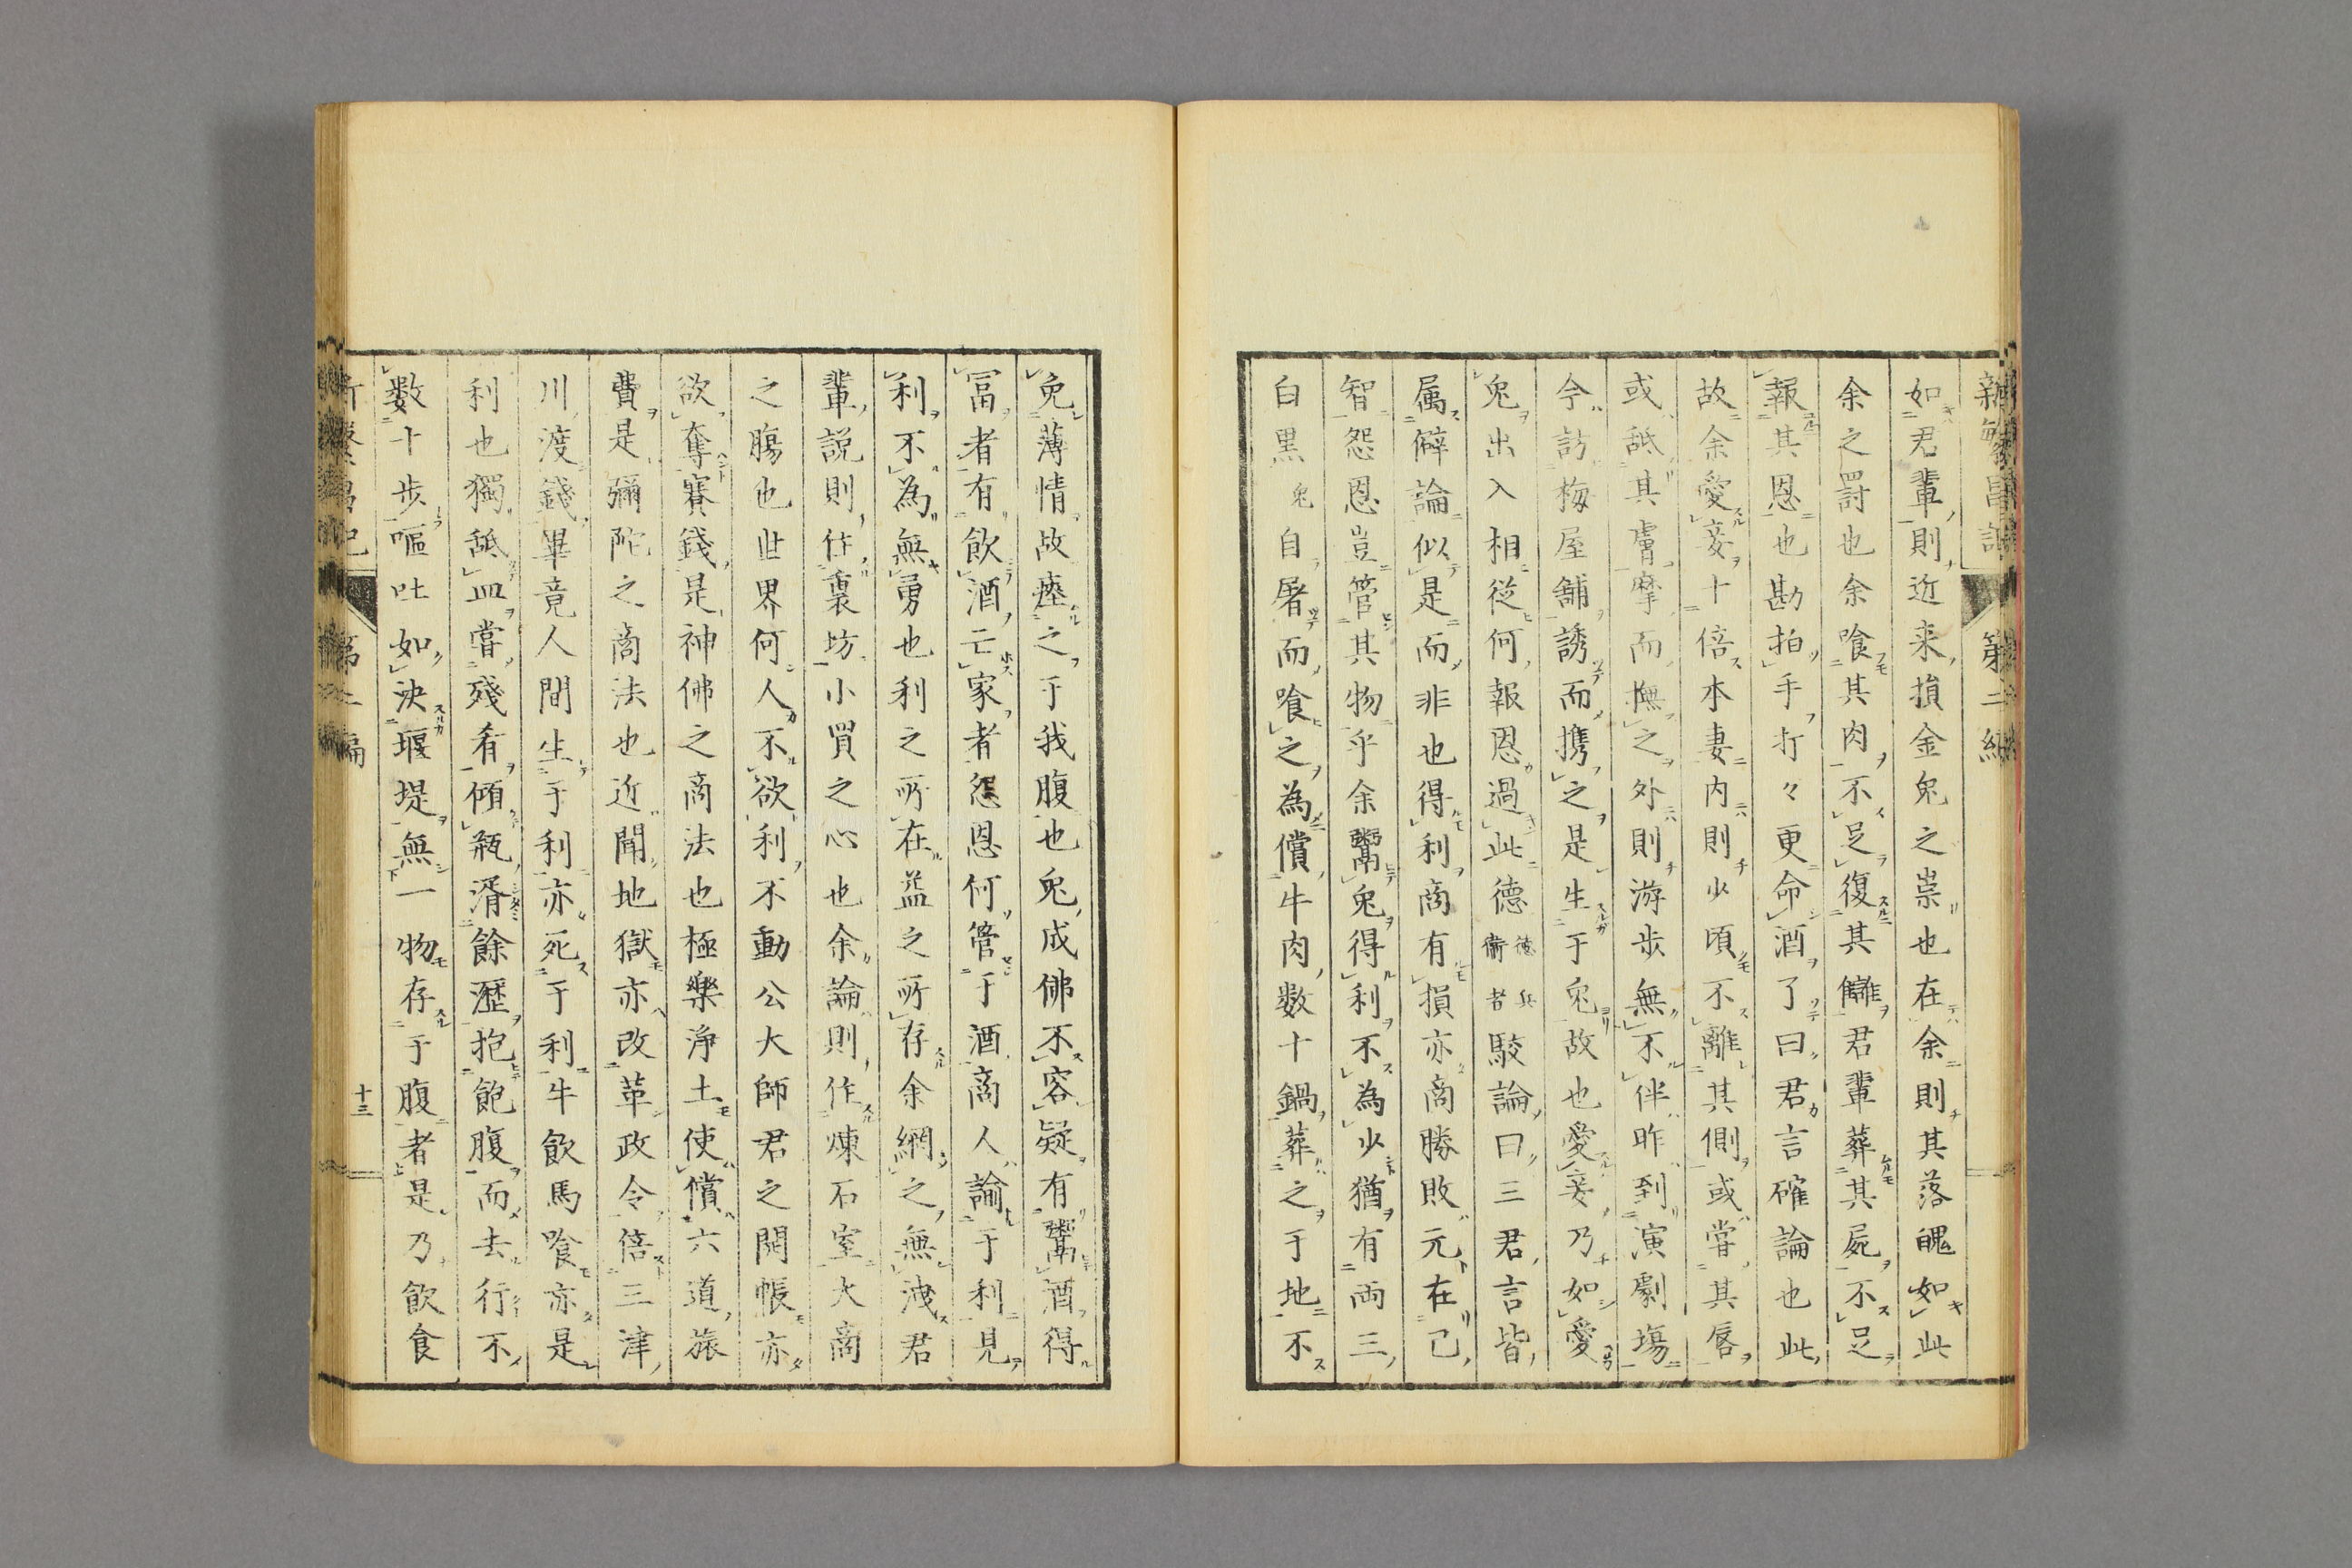 如君輩則近来損金兎之祟也在余則其落魄如此
余之罸也余喰其肉不足復其讎君輩葬其屍不足
報其恩也甚拍手打々更命酒了曰君言確論也此
故余愛妾十倍本妻内則少頃不離其側或嘗其唇
或舐其膚摩而撫之外則游歩無不伴昨到演劇塲
今訪梅屋舗誘而携之是生于兎故也愛妾乃如愛
兎出入相從何報恩過此德德兵衞者駁論曰三君言皆
属僻論似是而非也得利商有損亦商勝敗元在己
智怨恩豈管其物乎余鬻兎得利不為少猶有両三
白黒兎自屠而喰之為償牛肉数十鍋葬之于地不
免薄情故瘞之于我腹也兎成佛不容疑有鬻酒得
冨者有飲酒亡家者怨恩何管于酒商人論于利見
利不為無勇也利之所在益之所存余網之無洩君
輩説則住裏坊小買之心也余論則作煉石室大商
之膓也世界何人不欲利不動公大師君之開帳亦
欲奪賽錢是神佛之商法也極樂淨土使償六道旅
費是彌陀之商法也近聞地獄亦改革政令倍三津
川渡錢畢竟人間生于利亦死于利牛飲馬喰亦是
利也獨舐皿嘗殘肴傾瓶湑餘瀝抱飽腹而去行不
数十歩嘔吐如決堰堤無一物存于腹者是乃飲食
第二編
十三